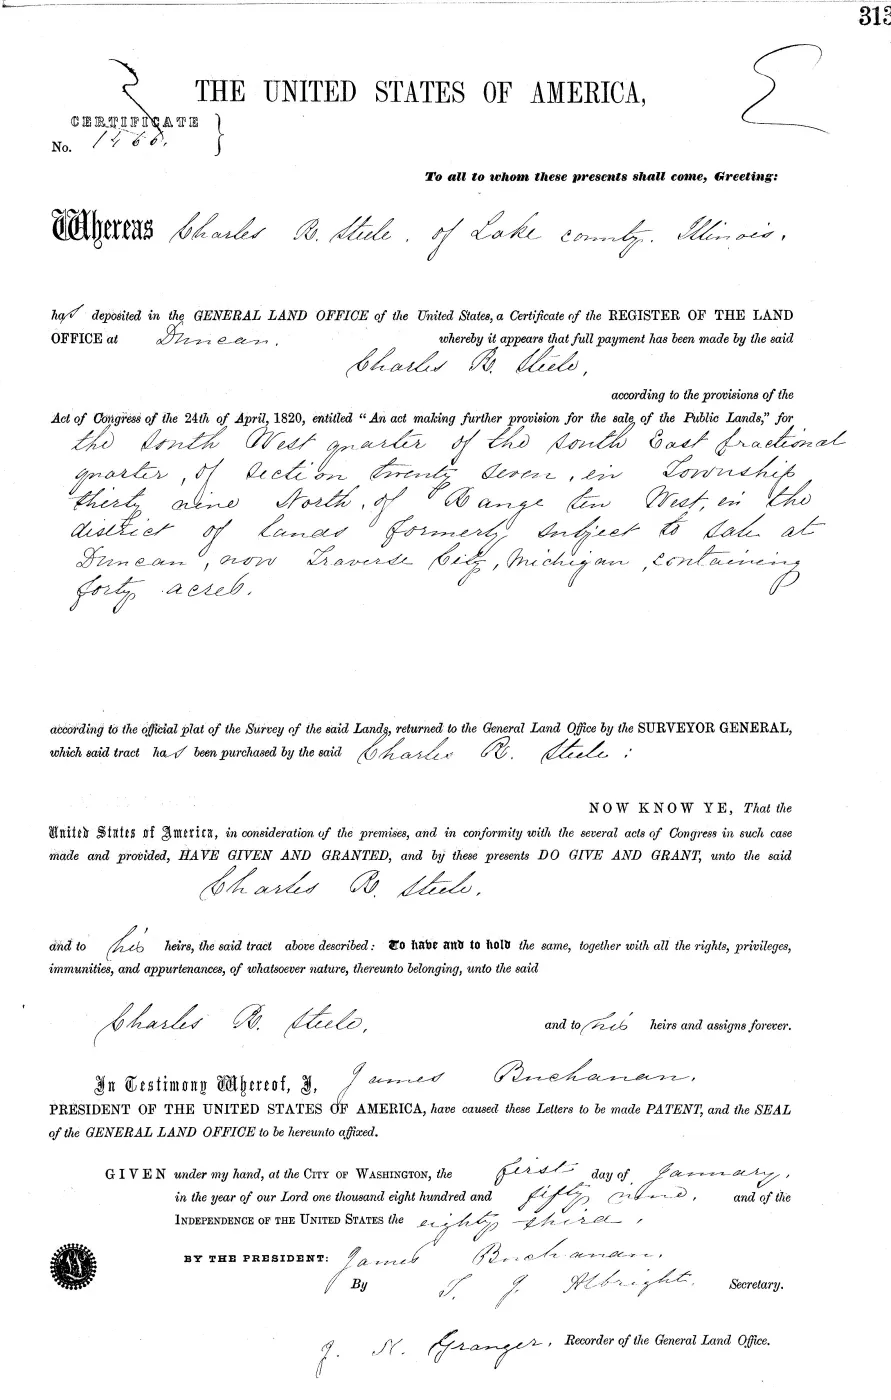 313
THE UNITED STATES OF AMERICA,
CERTIFICATE
No. 1466.
To all to whom these presents shall come, Greeting:
Whereas Charles R. Steele, of Lake county, Illinois,
has deposited in the GENERAL LAND OFFICE of the United States, a Certificate of the REGISTER OF THE LAND
OFFICE at Duncan, whereby it appears that full payment has been made by the said
Charles R. Steele,
according to the provisions of the
Act of Congress of the 24th of April, 1820, entitled "An act making further provision for the sale of the Public Lands," for
the South West quarter of the South East fractional
quarter, of section twenty seven, in Township
thirty nine North, of Range ten West, in the
district of lands formerly subject to sale at
Duncan, now Traverse City, Michigan, containing
forty acres.
according to the official plat of the Survey of the said Lands, returned to the General Land Office by the SURVEYOR GENERAL,
which said tract has been purchased by the said Charles R. Steele:
NOW KNOW YE, That the
United States of America, in consideration of the premises, and in conformity with the several acts of Congress in such case
made and provided, HAVE GIVEN AND GRANTED, and by these presents DO GIVE AND GRANT, unto the said
Charles R. Steele,
and to his heirs, the said tract above described: To have and to hold the same, together with all the rights, privileges,
immunities, and appurtenances, of whatsoever nature, thereunto belonging, unto the said
Charles R. Steele, and to his heirs and assigns forever.
In Testimony Whereof, I, James Buchanan,
PRESIDENT OF THE UNITED STATES OF AMERICA, have caused these Letters to be made PATENT, and the SEAL
of the GENERAL LAND OFFICE to be hereunto affixed.
GIVEN under my hand, at the CITY OF WASHINGTON, the first day of January,
in the year of our Lord one thousand eight hundred and fifty nine, and of the
INDEPENDENCE OF THE UNITED STATES the eighty third,
BY THE PRESIDENT: James Buchanan,
By T. J. Albright, Secretary.
J. N. Granger, Recorder of the General Land Office.